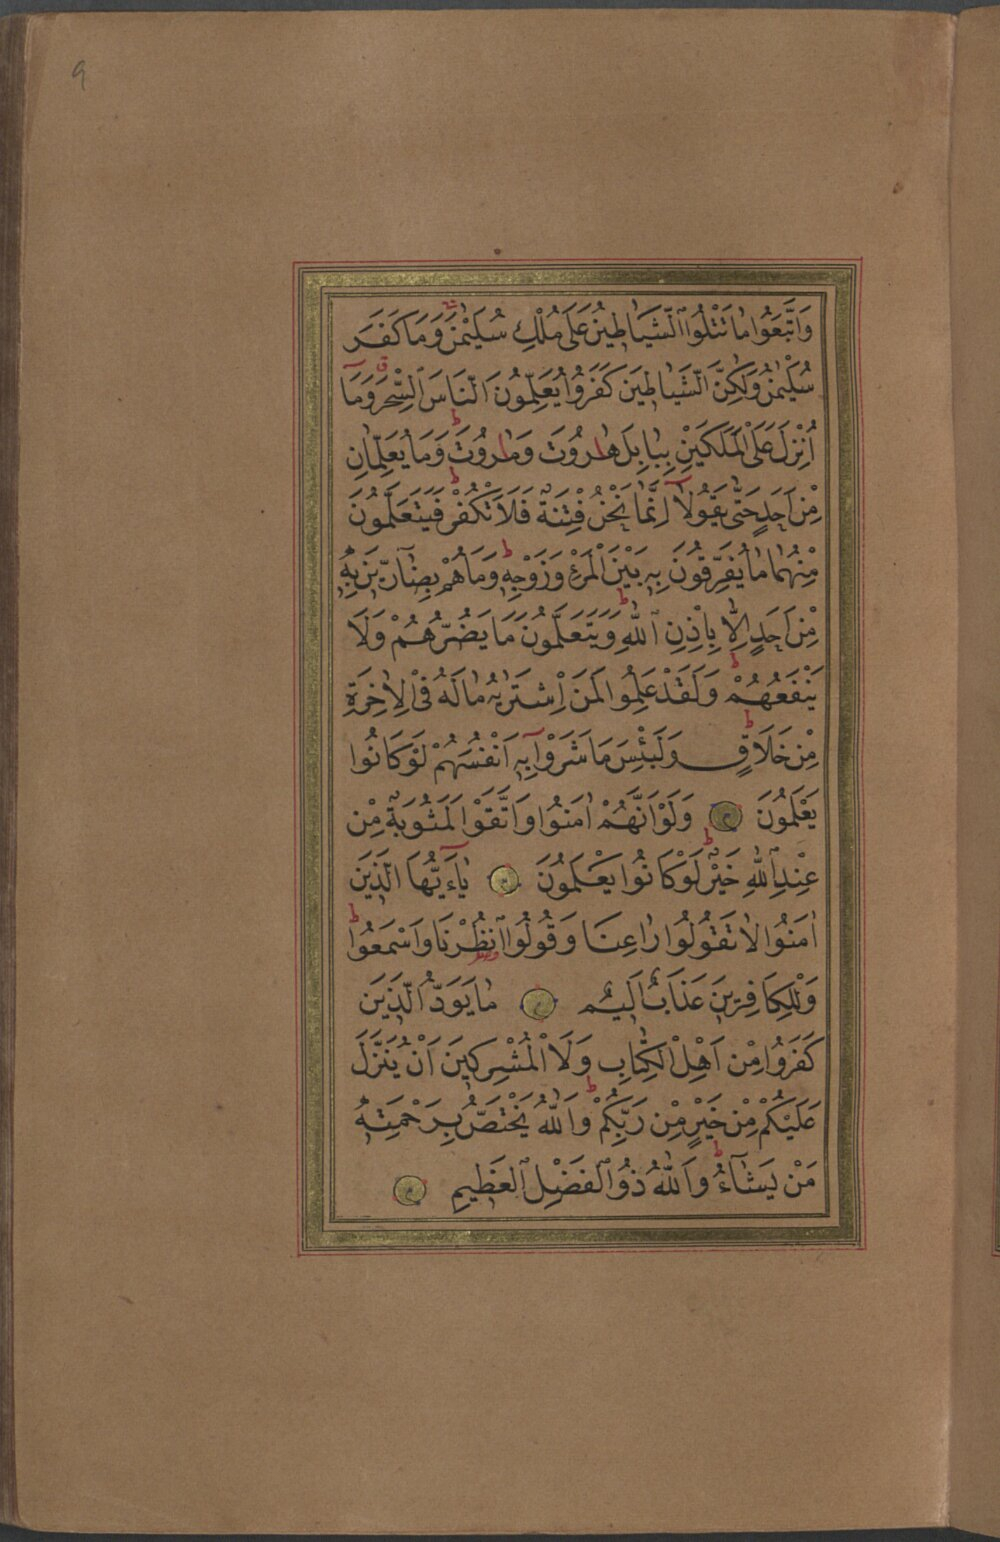 9
وَاتَّبَعُوا مَا تَتْلُوا الشَّيَاطِينُ عَلَى مُلْكِ سُلَيْمٰنَ وَمَا كَفَرَ
سُلَيْمٰنُ وَلٰكِنَّ الشَّيَاطِينَ كَفَرُوا يُعَلِّمُونَ النَّاسَ السِّحْرَ وَمَا
اُنْزِلَ عَلَى الْمَلَكَيْنِ بِبَابِلَ هَارُوتَ وَمَارُوتَ وَمَا يُعَلِّمَانِ
مِنْ اَحَدٍ حَتّٰى يَقُولَا اِنَّمَا نَحْنُ فِتْنَةٌ فَلَا تَكْفُرْ فَيَتَعَلَّمُونَ
مِنْهُمَا مَا يُفَرِّقُونَ بِهِ بَيْنَ الْمَرْءِ وَزَوْجِهِ وَمَا هُمْ بِضَارِّينَ بِهِ
مِنْ اَحَدٍ اِلَّا بِاِذْنِ اللّٰهِ وَيَتَعَلَّمُونَ مَا يَضُرُّهُمْ وَلَا
يَنْفَعُهُمْ وَلَقَدْ عَلِمُوا لَمَنِ اشْتَرٰيهُ مَا لَهُ فِي الْاٰخِرَةِ
مِنْ خَلَاقٍ وَلَبِئْسَ مَا شَرَوْا بِهِ اَنْفُسَهُمْ لَوْ كَانُوا
يَعْلَمُونَ وَلَوْ اَنَّهُمْ اٰمَنُوا وَاتَّقَوْا لَمَثُوبَةٌ مِنْ
عِنْدِ اللّٰهِ خَيْرٌ لَوْ كَانُوا يَعْلَمُونَ يَا اَيُّهَا الَّذِينَ
اٰمَنُوا لَا تَقُولُوا رَاعِنَا وَقُولُوا انْظُرْنَا وَاسْمَعُوا
وَلِلْكَافِرِينَ عَذَابٌ اَلِيمٌ مَا يَوَدُّ الَّذِينَ
كَفَرُوا مِنْ اَهْلِ الْكِتَابِ وَلَا الْمُشْرِكِينَ اَنْ يُنَزَّلَ
عَلَيْكُمْ مِنْ خَيْرٍ مِنْ رَبِّكُمْ وَاللّٰهُ يَخْتَصُّ بِرَحْمَتِهِ
مَنْ يَشَاءُ وَاللّٰهُ ذُو الْفَضْلِ الْعَظِيمِ